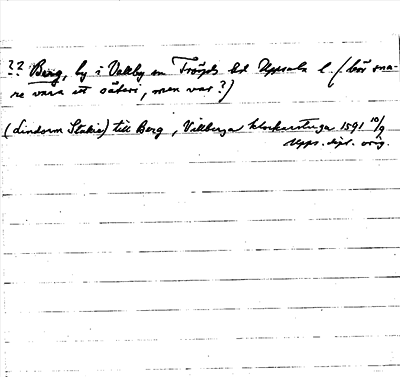 ?? Berg, by i Vallby sn Trögds hd Uppsala l. (bör sna-
re vara ett säteri, men var?)
(Lindorm Stake) till Berg, Villberga klockarstuga 1591 10/9
Upps. dipl. orig.